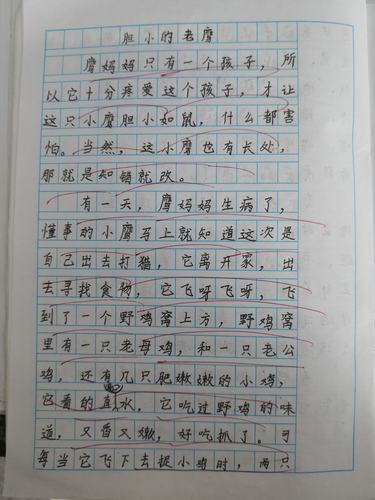 胆小的老鹰
鹰妈妈只有一个孩子，所
以它十分疼爱这个孩子，才让
这只小鹰胆小如鼠，什么都害
怕。当然，这小鹰也有长处，
那就是知错就改。
有一天，鹰妈妈生病了，
懂事的小鹰马上就知道这次是
自己出去打猫，它离开家，出
去寻找食物，它飞呀飞呀，飞
到了一个野鸡窝上方，野鸡窝
里有一只老母鸡，和一只老公
鸡，还有几只肥嫩嫩的小鸡，
它看的直水，它吃过野鸡的味
道，又香又嫩，好吃抓了。可
每当它飞下去捉小鸡时，两只